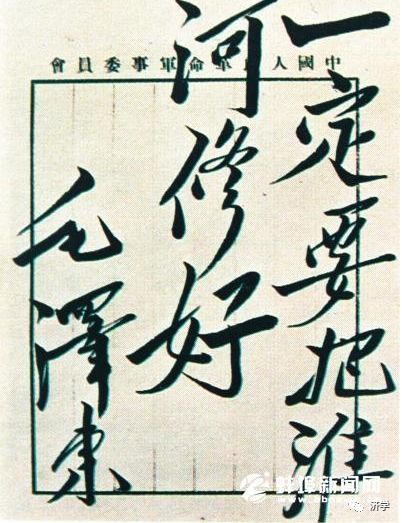 中國人民革命軍事委員會
一定要把淮
河修好
毛澤東
蚌埠新闻网
济学